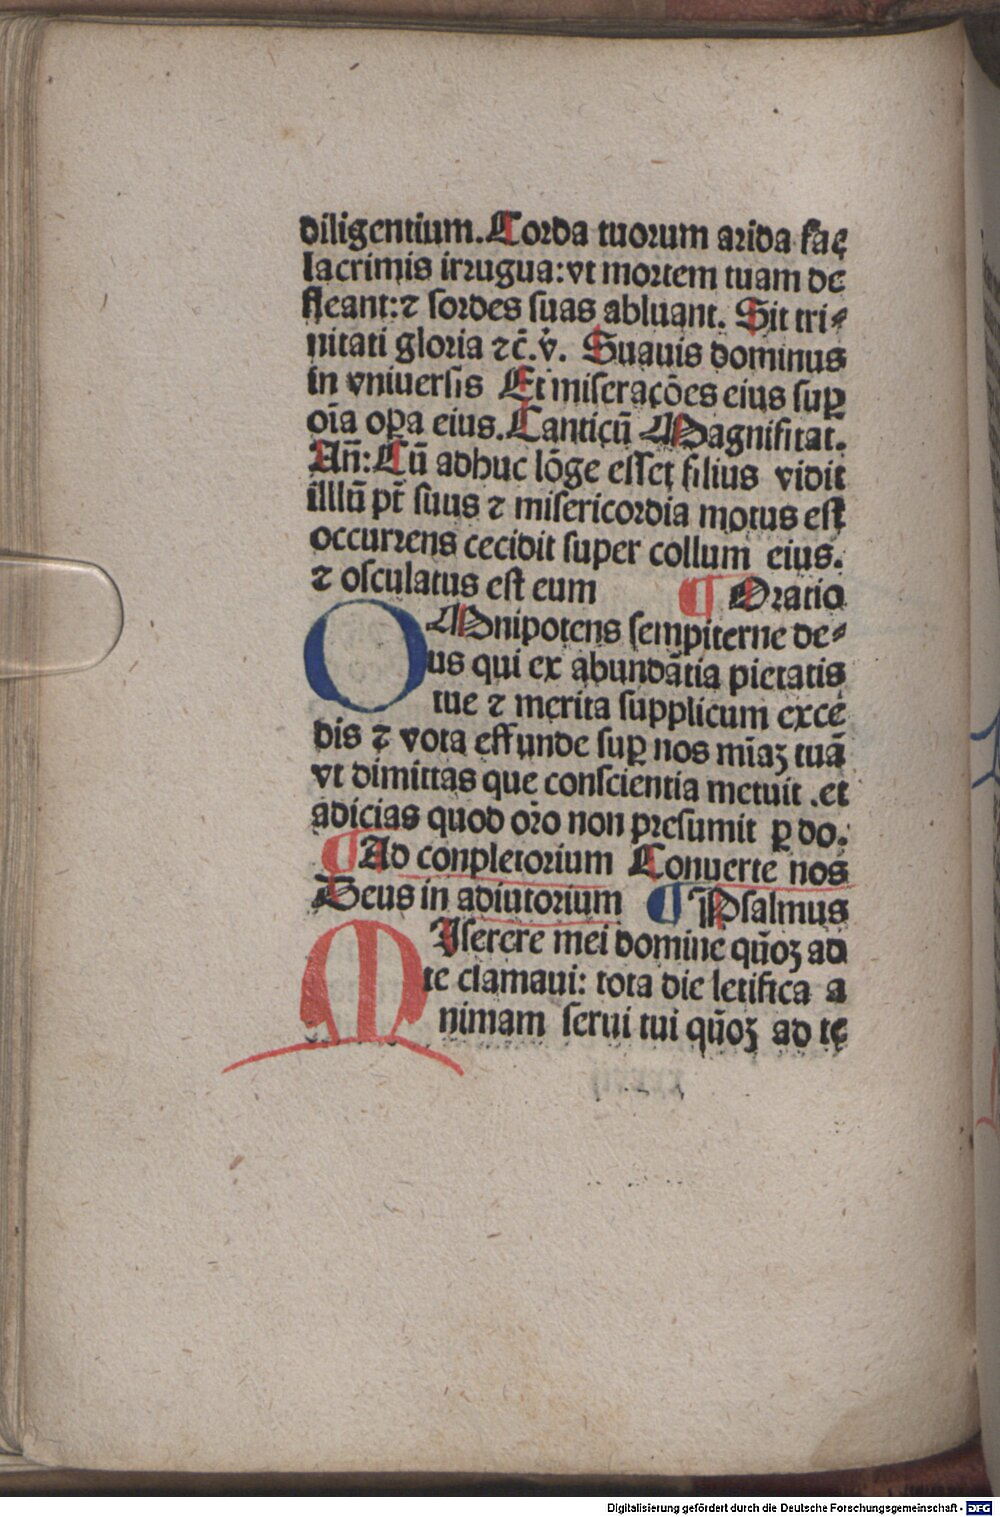 diligentium. Corda tuorum arida fac
lacrimis irrugua: vt mortem tuam de
fleant: ⁊ sordes suas abluant. Sit tri⸗
nitati gloria ⁊c̄. v̇. Suauis dominus
in vniuersis Et miseracōes eius suꝑ
oīa oꝑa eius. Canticū Magnificat.
An̄: Cū adhuc lōge esset filius vidit
illlū pr̄ suus ⁊ misericordia motus est
occurrens cecidit super collum eius.
⁊ osculatus est eum ¶ Oratio
OMnipotens sempiterne de⸗
us qui ex abundātia pietatis
tue ⁊ merita supplicum excé
dis ⁊ vota effunde suꝑ nos mīaꝫ tuā
vt dimittas que conscientia metuit .et
adicias quod oro non presumit ꝑ do.
¶ Ad conpletorium Conuerte nos
Deus in adiutorium ¶ Psalmus
MIserere mei domine qūoꝫ ad
te clamaui: tota die letifica a
nimam serui tui qūoꝫ ad te
Digitalisierung gefördert durch die Deutsche Forschungsgemeinschaft - DFG